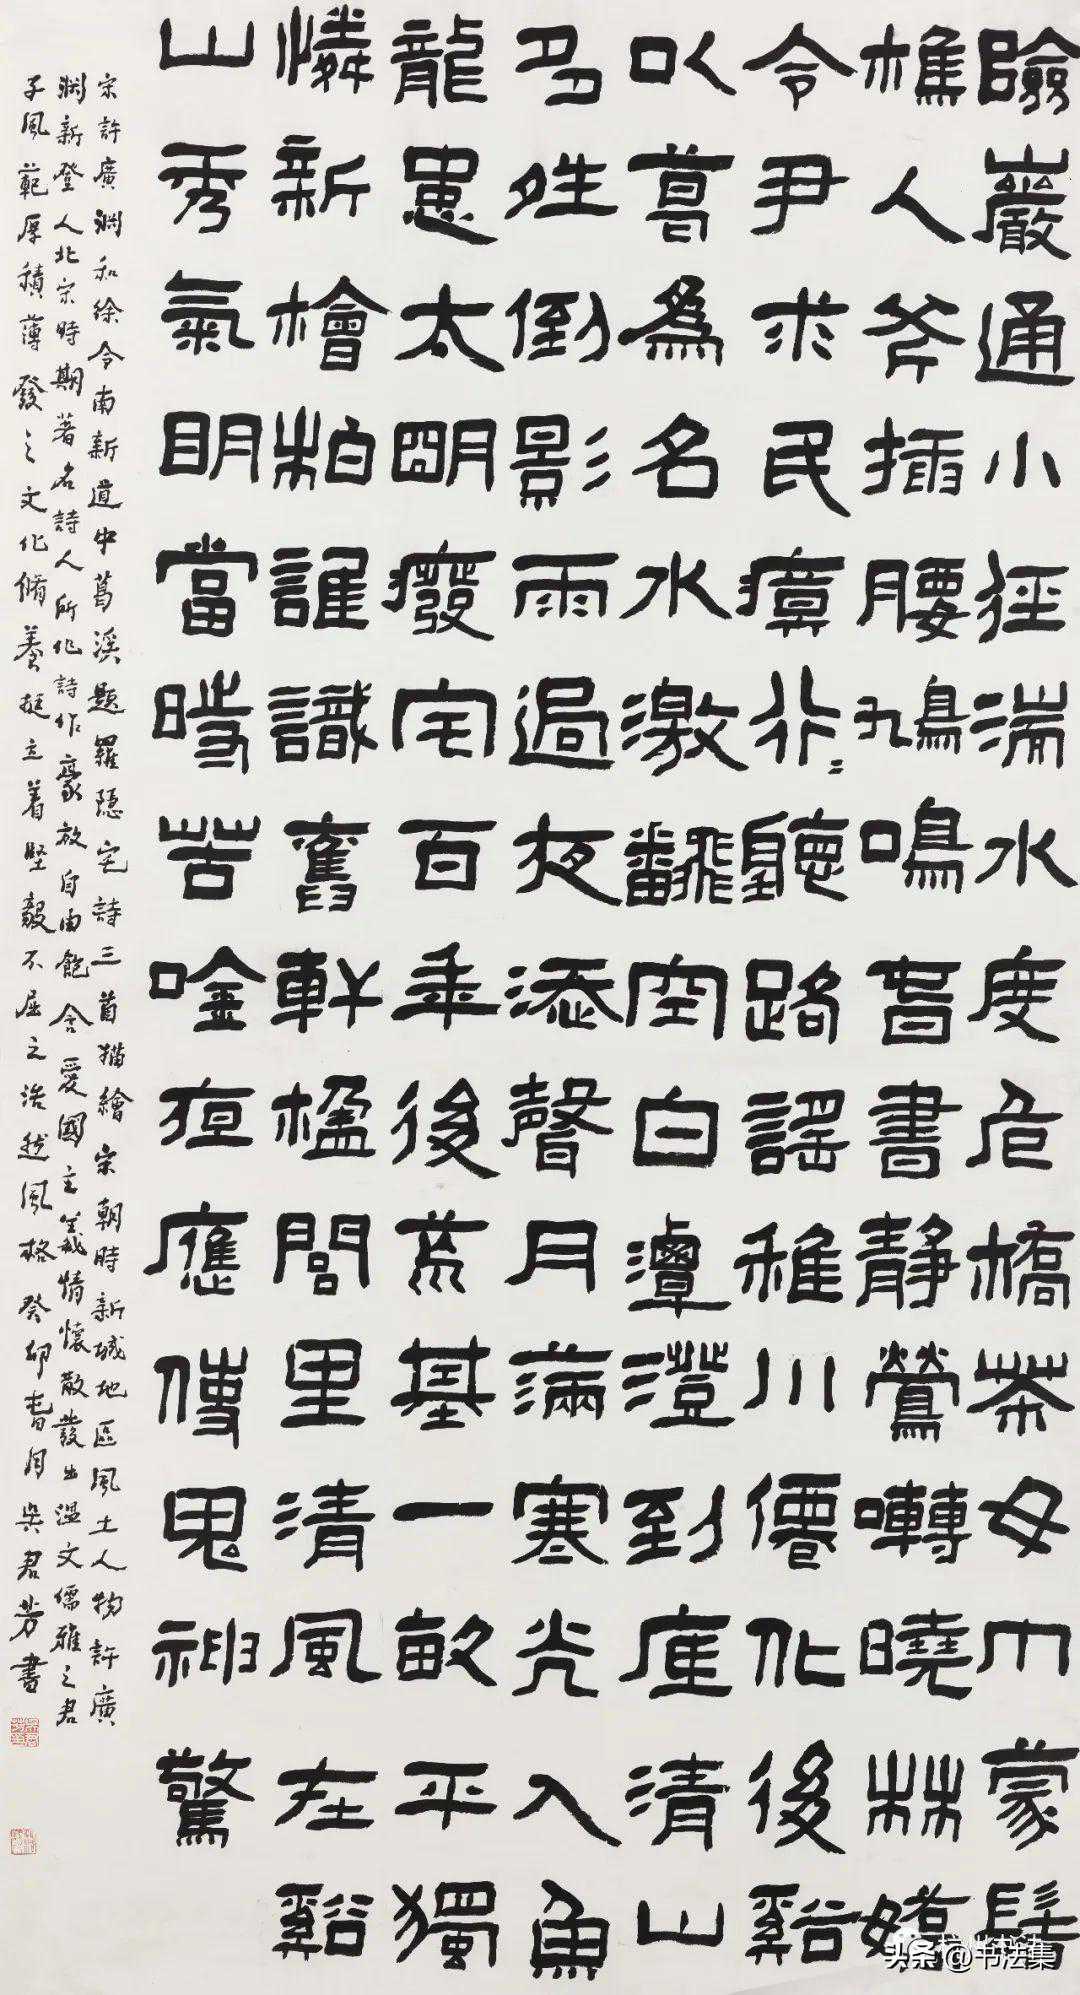 險巖通小徑湍水度危橋茶女巾蒙髻
樵人斧插腰鳩鳴春晝靜鶯囀曉林嬌
令尹求民瘼行=聽路謠稚川僊化後谿
以葛為名水激翻空白潭澄到底清山
多姓倒影雨過夜添聲月滿寒光入魚
龍思太明廢宅百年後荒基一畝平獨
憐新檜柏誰識舊軒楹閭里清風在谿
山秀氣明當時苦唫應傳鬼神驚
宋許廣淵和徐令南新道中葛溪題羅隱宅詩三首描繪宋朝時新城地區風土人物許廣
淵新登人北宋時期著名詩人所作詩作豪放自由飽含愛國主義情懷散發出溫文儒雅之君
子風範厚積薄發之文化脩養挺立着堅毅不屈之浩然風格癸卯春月吳君芳書
头条@书法集